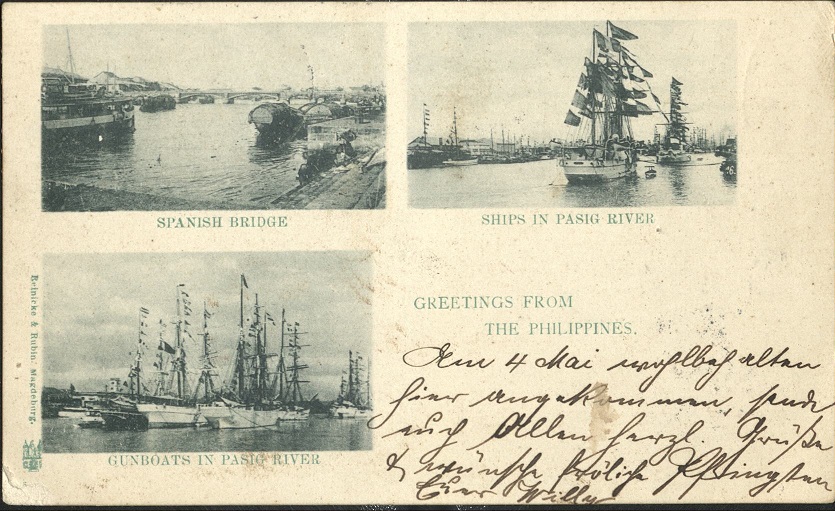 SPANISH BRIDGE
SHIPS IN PASIG RIVER
Reinicke & Rubin, Magdeburg.
GUNBOATS IN PASIG RIVER
GREETINGS FROM
THE PHILIPPINES.
Am 4 Mai wohlbehalten
hier angekommen, sende
euch Allen herzl. Grüße
& wünsche fröliche Pfingsten
Euer Willy